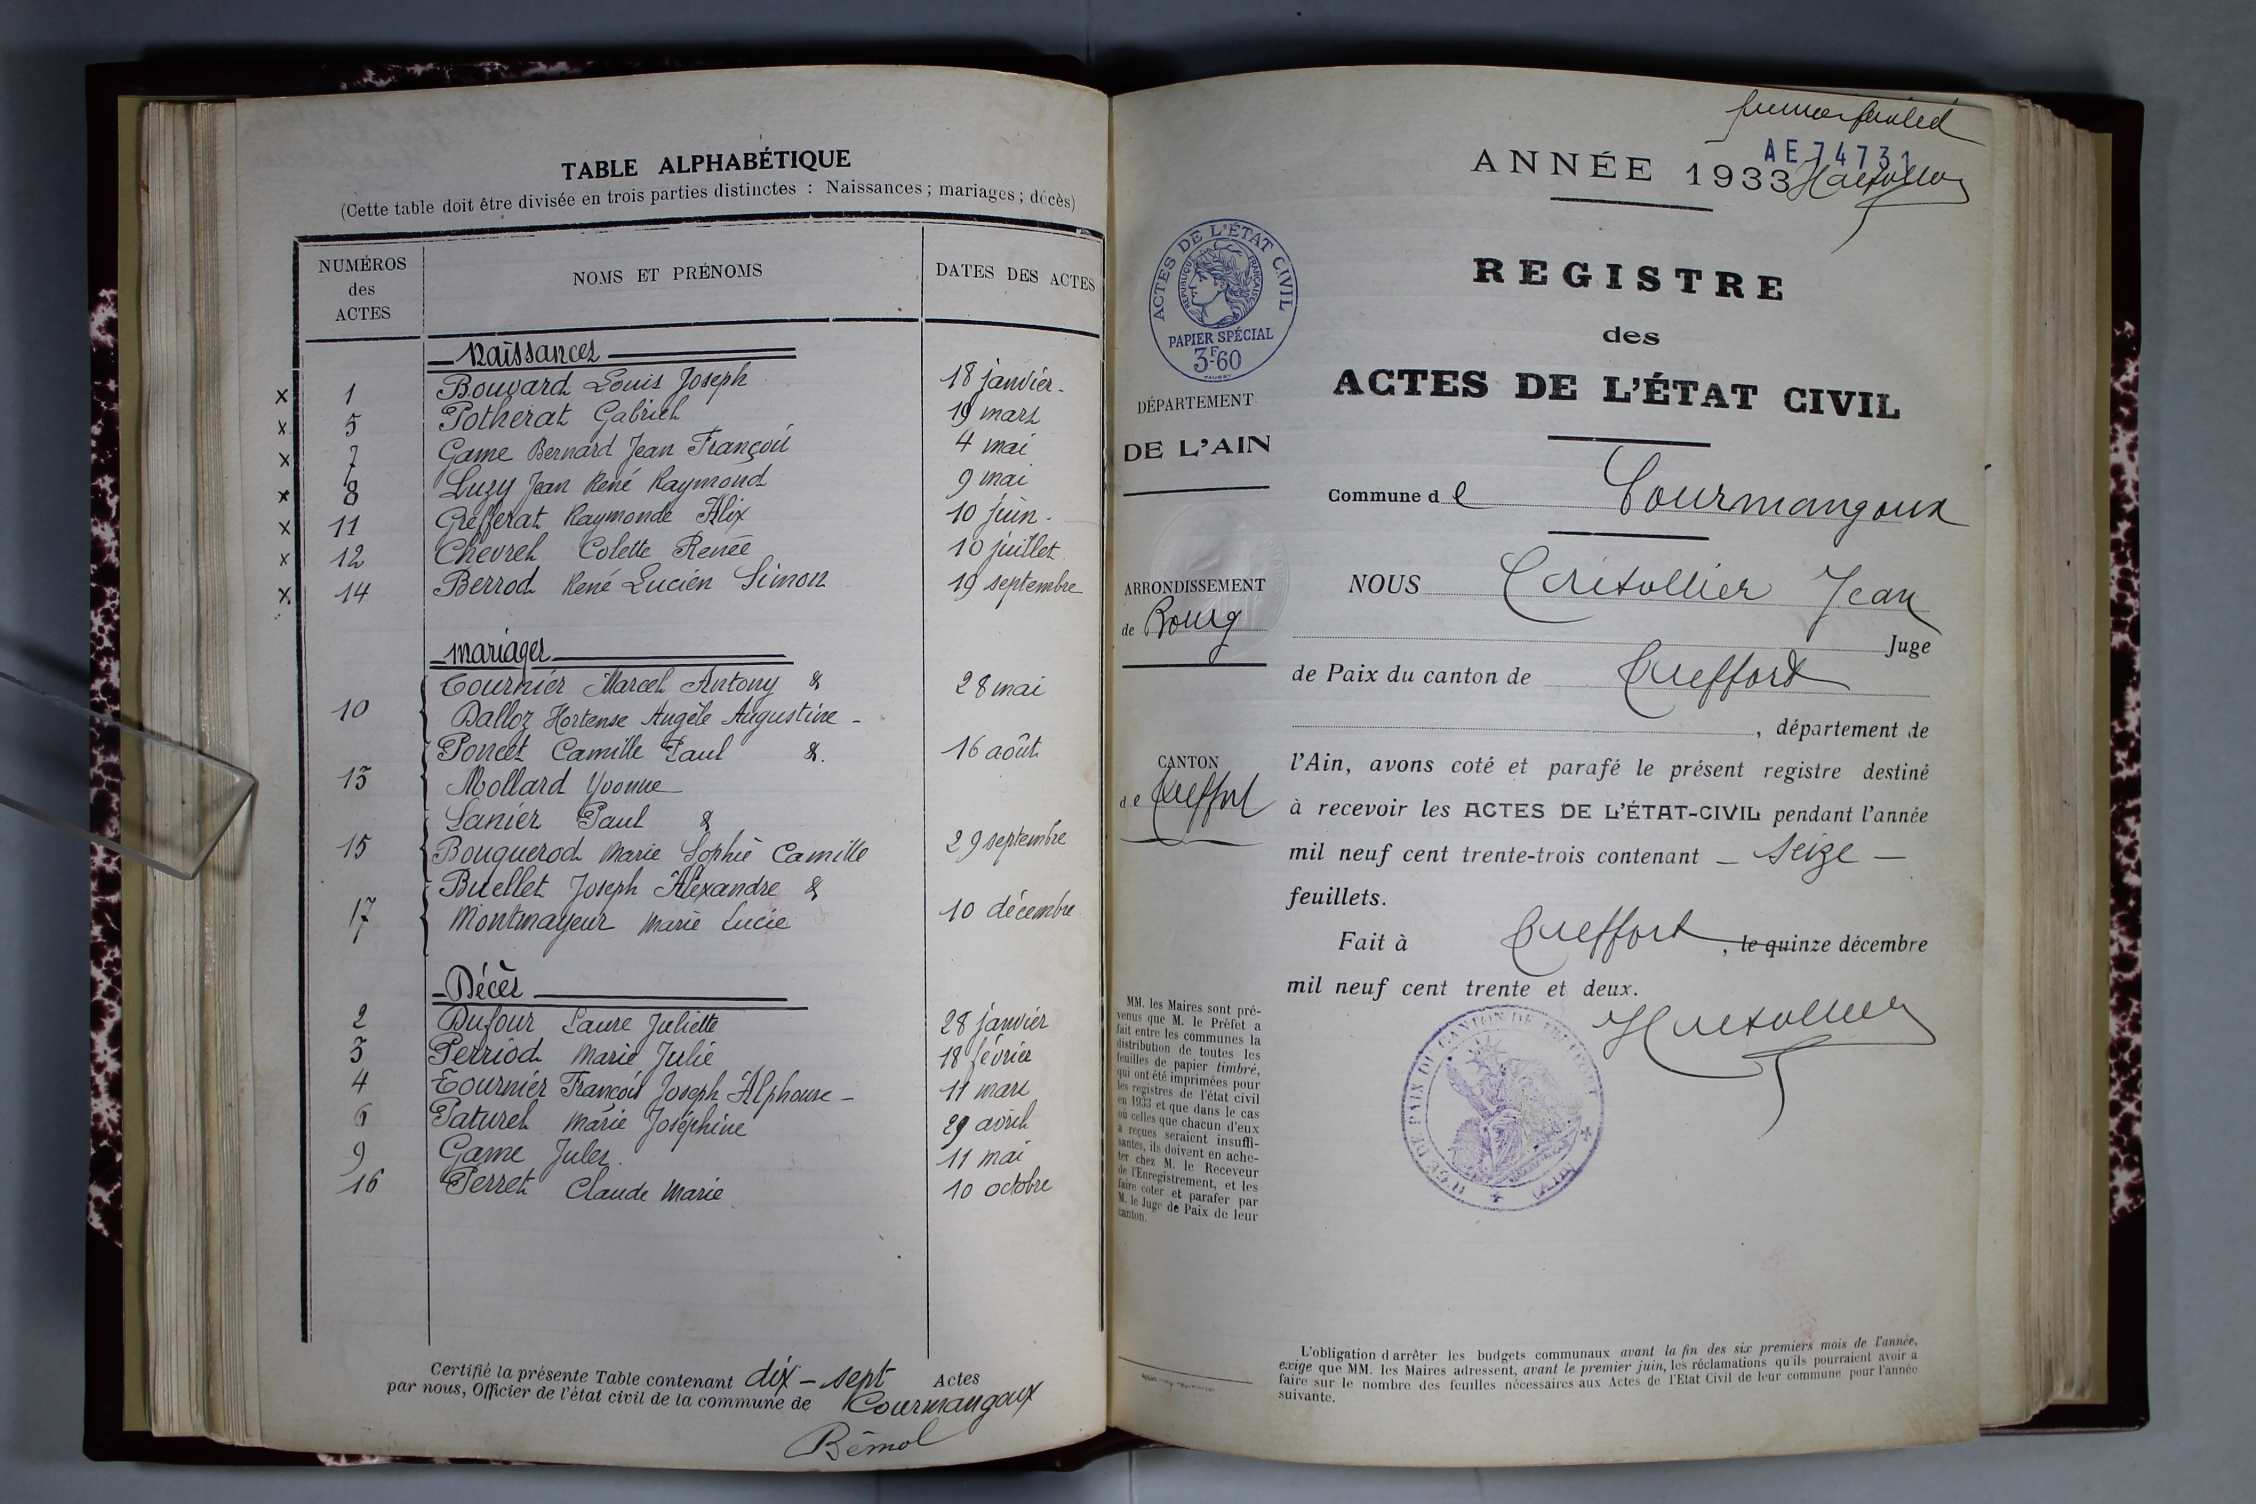 TABLE ALPHABÉTIQUE
(Cette table doit être divisée en trois parties distinctes : Naissances ; mariages ; décès)
NUMÉROS des ACTES NOMS ET PRÉNOMS DATES DES ACTES
Naissances
x 1 Bouvard Louis Joseph 18 janvier
x 5 Potherat Gabriel 19 mars
x 7 Game Bernard Jean François 4 mai
x 8 Luzy Jean René Raymond 9 mai
x 11 Grefferat Raymonde Alix 10 juin
x 12 Chevrel Colette Renée 10 juillet
x 14 Berrod René Lucien Simon 19 septembre
mariages
Tournier Marcel Antony & 28 mai
10 Dalloz Hortense Angèle Augustine
Poncet Camille Paul & 16 août
13 Mollard Yvonne
Lanier Paul &
15 Bouquerod Marie Sophie Camille 29 septembre
Buellet Joseph Alexandre &
17 Montmayeur Marie Lucie 10 décembre
Décès
2 Dufour Laure Juliette 28 janvier
3 Perriod Marie Julie 18 février
4 Tournier François Joseph Alphonse 11 mars
6 Paturel Marie Joséphine 29 avril
9 Game Jules 11 mai
16 Perret Claude Marie 10 octobre
Certifié la présente Table contenant dix-sept Actes
par nous, Officier de l'état civil de la commune de Courmangoux
Bémol
premier feuillet
AE74731
ANNÉE 1933
REGISTRE
des
ACTES DE L'ÉTAT CIVIL
ACTES DE L'ÉTAT CIVIL
RÉPUBLIQUE FRANÇAISE
PAPIER SPÉCIAL
3F60
DÉPARTEMENT
DE L'AIN
ARRONDISSEMENT
de Bourg
CANTON
de Treffort
MM. les Maires sont pré-
venus que M. le Préfet a
fait entre les communes la
distribution de toutes les
feuilles de papier timbré,
qui ont été imprimées pour
les registres de l'état civil
en 1933 et que dans le cas
où celles que chacun d'eux
a reçues seraient insuffi-
santes, ils doivent en ache-
ter chez M. le Receveur
de l'Enregistrement, et les
faire coter et parafer par
M. le Juge de Paix de leur
canton.
Commune de Courmangoux
NOUS Cretollier Jean
Juge
de Paix du canton de Treffort
, département de
l'Ain, avons coté et parafé le présent registre destiné
à recevoir les ACTES DE L'ÉTAT-CIVIL pendant l'année
mil neuf cent trente-trois contenant – seize –
feuillets.
Fait à Treffort, le quinze décembre
mil neuf cent trente et deux.
JUGE DE PAIX DU CANTON DE TREFFORT (AIN)
L'obligation d'arrêter les budgets communaux avant la fin des six premiers mois de l'année,
exige que MM. les Maires adressent, avant le premier juin, les réclamations qu'ils pourraient avoir à
faire sur le nombre des feuilles nécessaires aux Actes de l'Etat Civil de leur commune pour l'année
suivante.